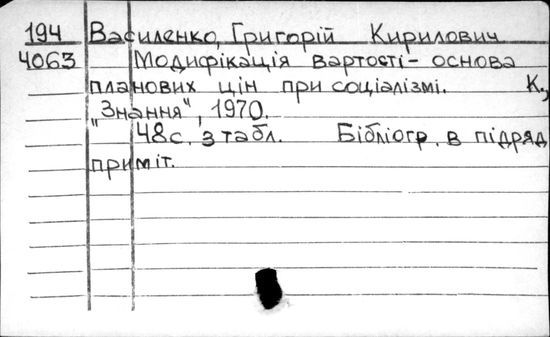 194 Василенко, Григорій Кирилович
4063 Модифікація вартості - основа
планових цін при соціалізмі. К.,
„Знання", 1970.
48с. з табл. Бібліогр. в підряд
приміт.